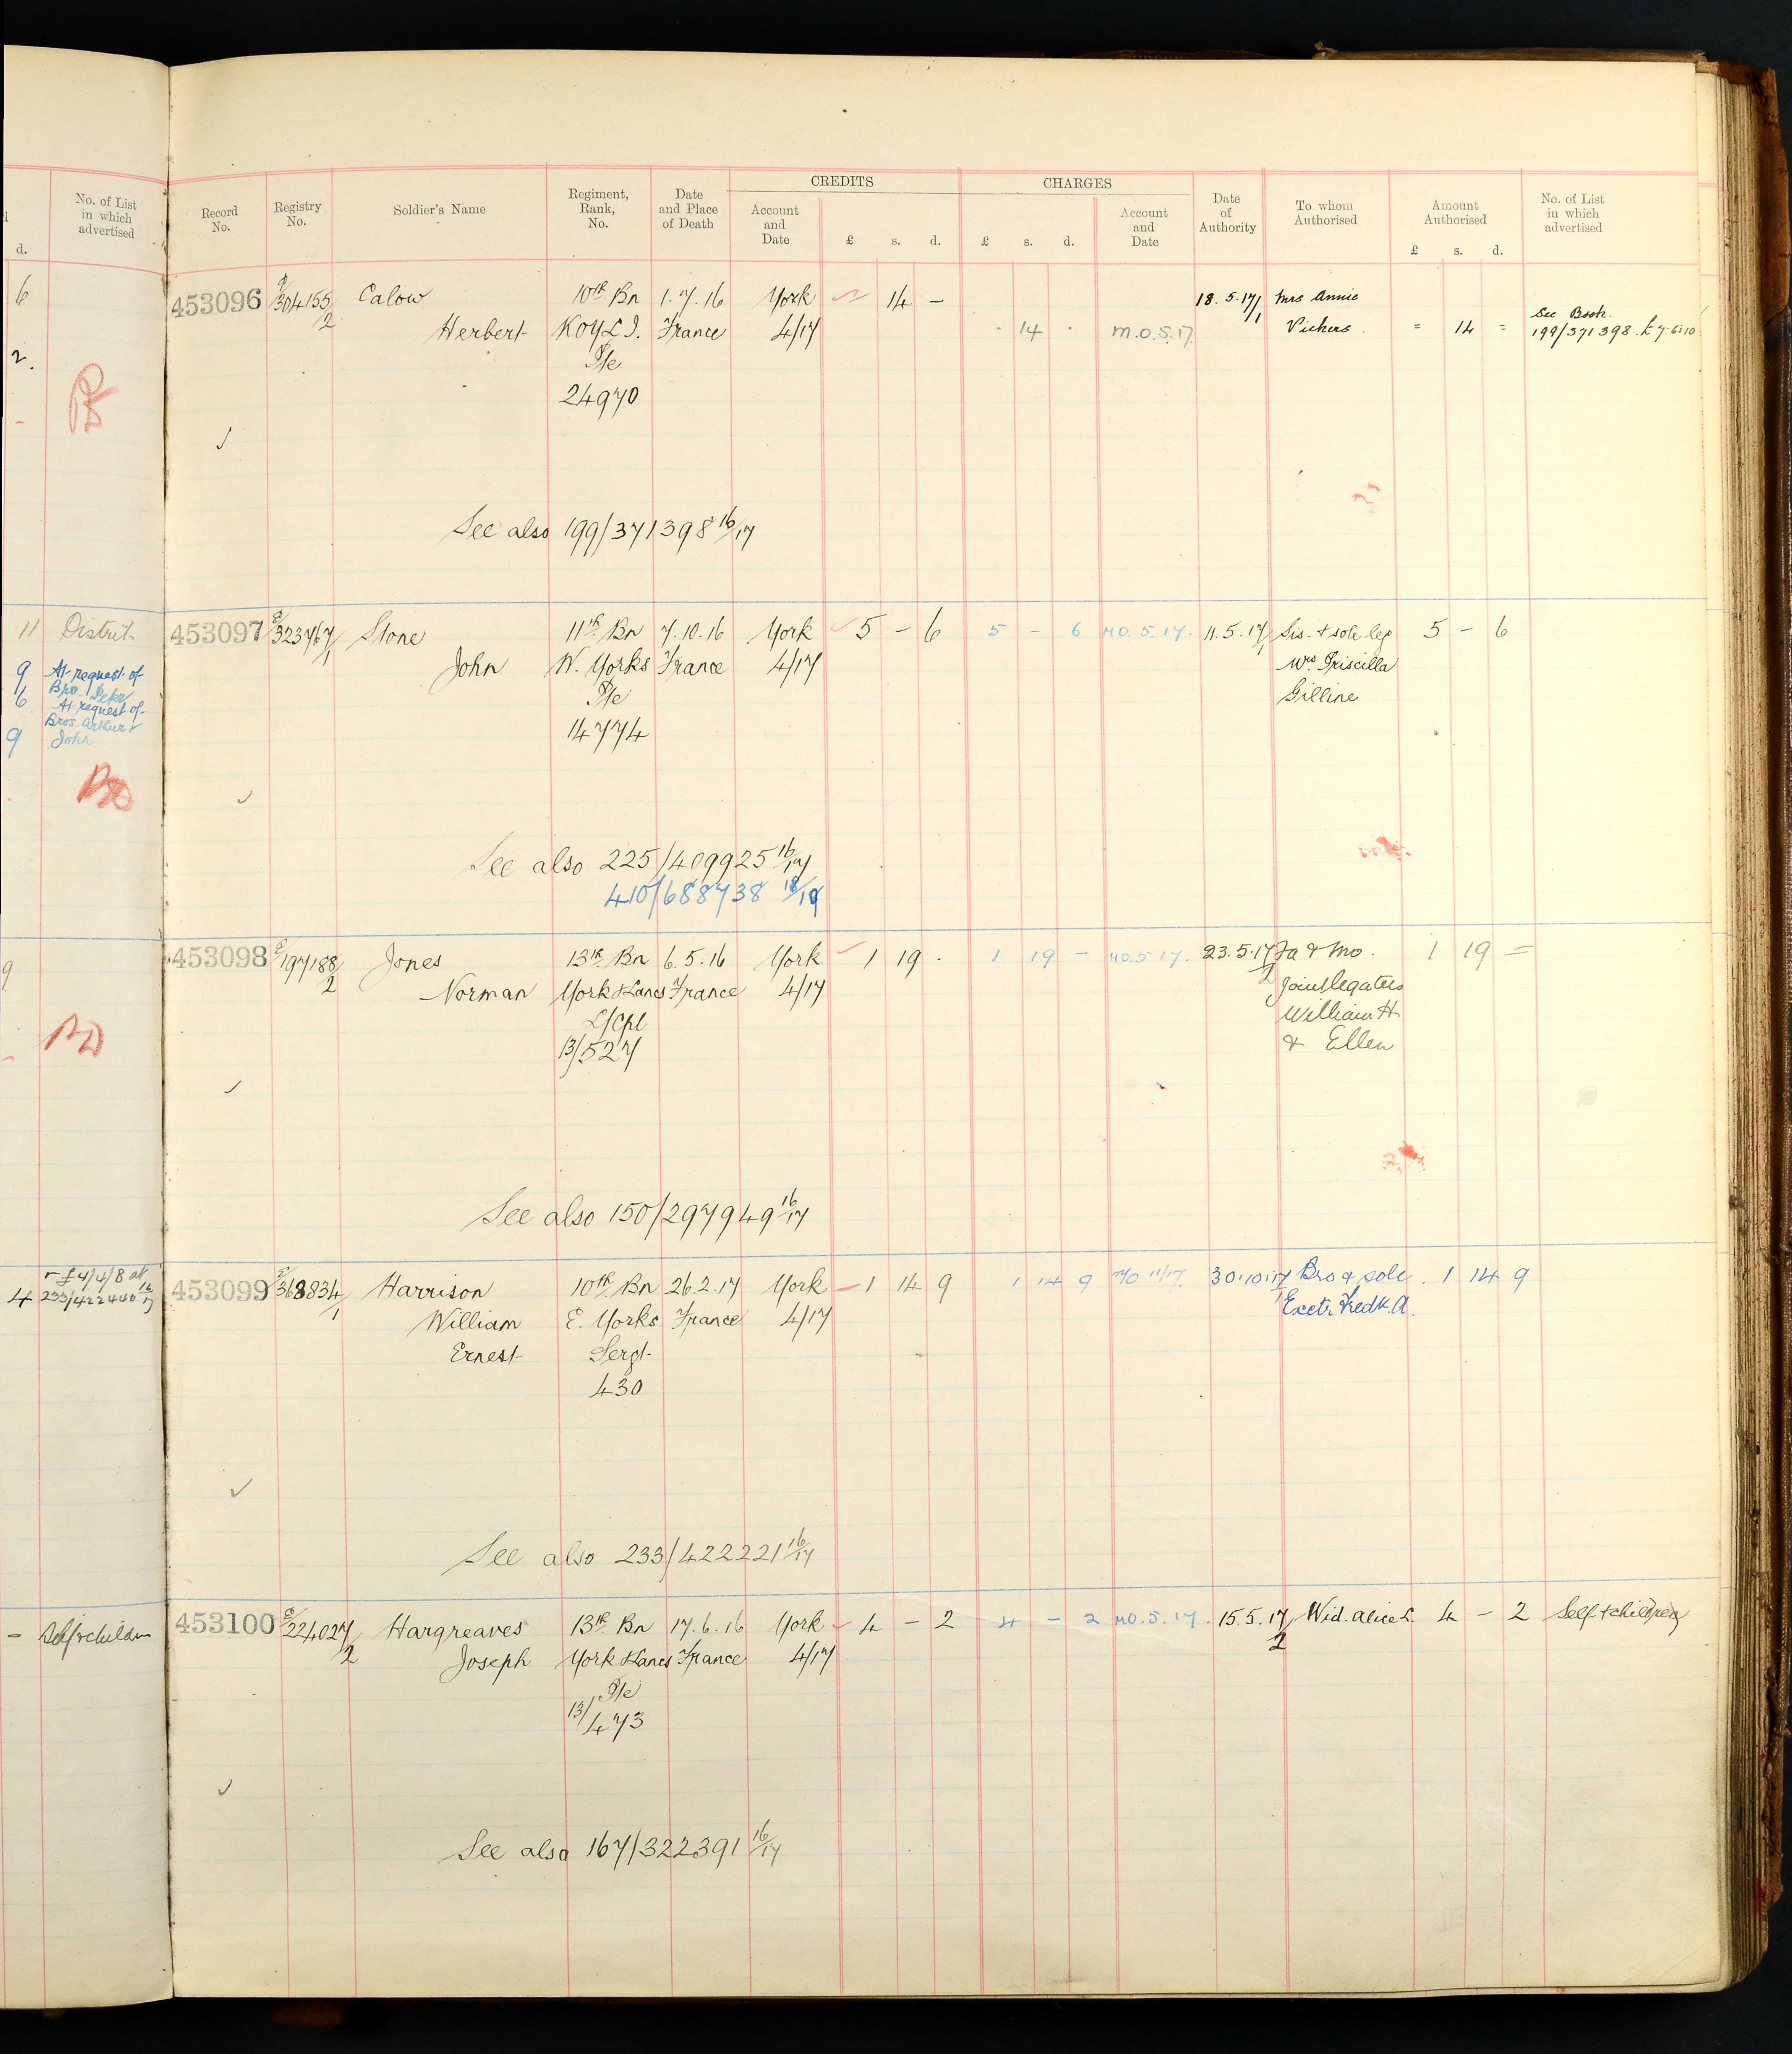 No. of List
in which
advertised
d.
6
2.
11 Distrib.
9 At request of
6 Bro. Peter
At request of
Bros. Arthur &
9 John
9
- £4/4/8 at
4 233/422440 16/17
- Self & children
Record No.
Registry No.
Soldier's Name
Regiment, Rank, No.
Date and Place of Death
CREDITS
Account and Date
£ s. d.
CHARGES
£ s. d.
Account and Date
Date of Authority
To whom Authorised
Amount Authorised
£ s. d.
No. of List in which advertised
453096 E/304155/2 Calow 10th Bn 1.7.16 York 14 - 18.5.17/1 Mrs Annie
Herbert KOYLI. France 4/17 - 14 - M.O.5.17 Vickers = 14 = See Book
199/371398. £7.6.10
Pte
24970
See also 199/371398 16/17
453097 E/323767/1 Stone 11th Bn 7.10.16 York 5 - 6 5 - 6 MO.5.17. 11.5.17/1 Sis. & sole leg 5 - 6
John W. Yorks France 4/17 Mrs Priscilla
Pte Gilline
14774
See also 225/409925 16/17
410/688738 18/19
453098 E/197188/2 Jones 13th Bn 6.5.16 York 1 19 . 1 19 - MO.5.17. 23.5.17/2 Fa & Mo. 1 19 =
Norman York & Lancs France 4/17 Joint legatees
L/Cpl William H
13/527 & Ellen
See also 150/297949 16/17
453099 E/368834/1 Harrison 10th Bn 26.2.17 York 1 14 9 1 14 9 MO 11/17 30.10.17/1 Bro & sole 1 14 9
William E. Yorks France 4/17 Exctr Fredk. A.
Ernest Sergt.
430
See also 233/422221 16/17
453100 E/224027/2 Hargreaves 13th Bn 17.6.16 York 4 - 2 4 - 2 MO.5.17. 15.5.17/2 Wid. Alice L. 4 - 2 Self & children
Joseph York & Lancs France 4/17
Pte
13/473
See also 167/322391 16/17